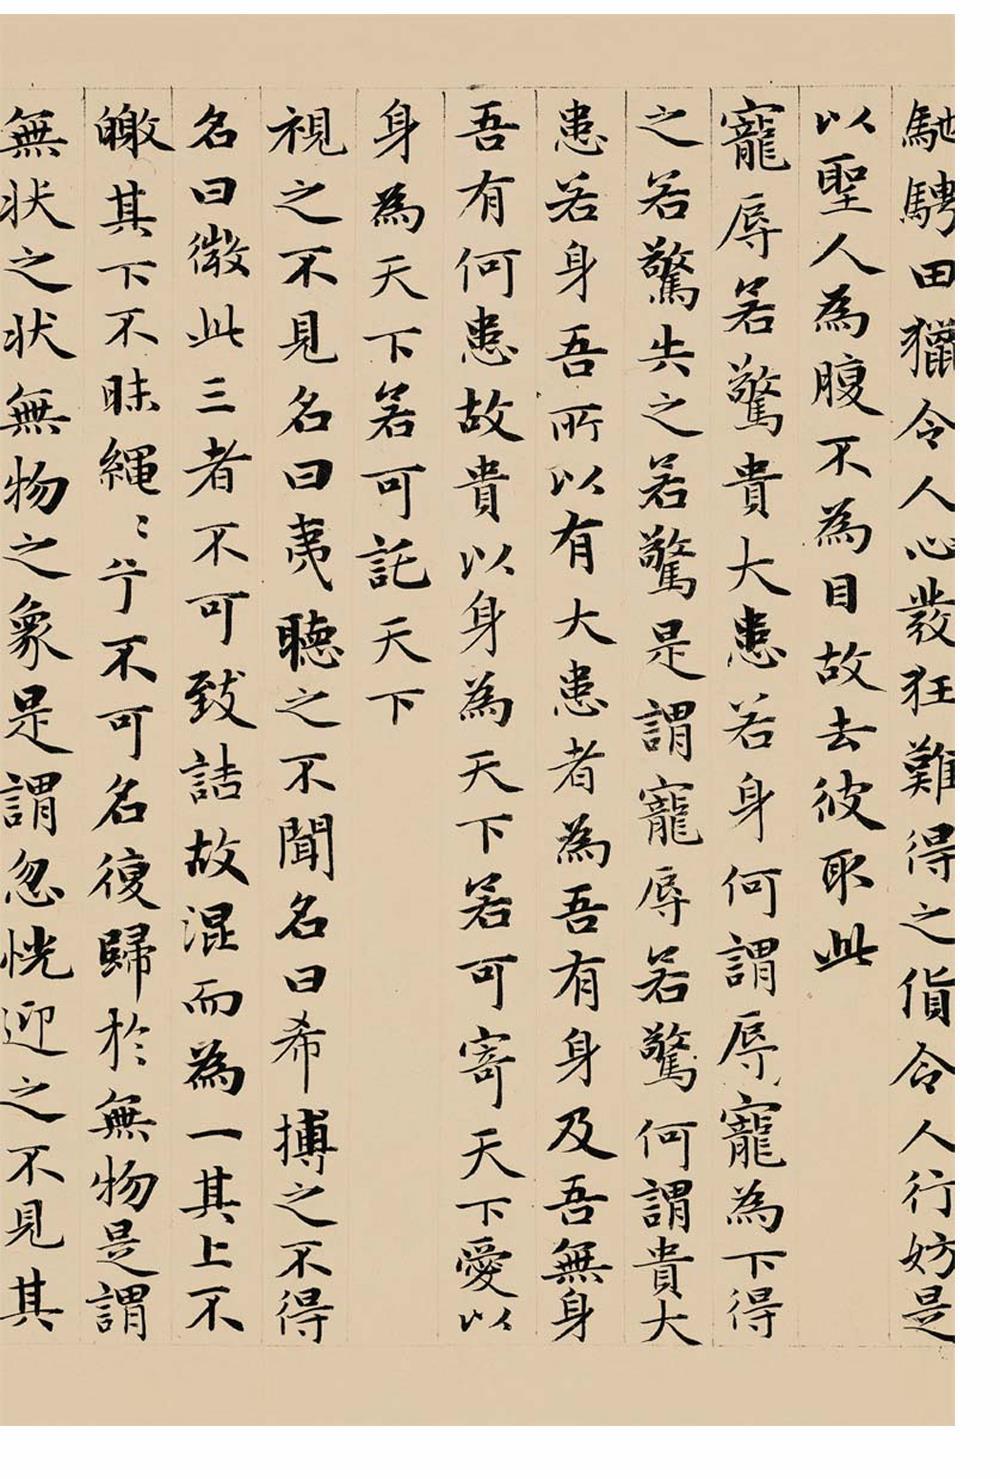 馳騁田獵令人心發狂難得之貨令人行妨是
以聖人為腹不為目故去彼取此
寵辱若驚貴大患若身何謂辱寵為下得
之若驚失之若驚是謂寵辱若驚何謂貴大
患若身吾所以有大患者為吾有身及吾無身
吾有何患故貴以身為天下若可寄天下愛以
身為天下若可託天下
視之不見名曰夷聽之不聞名曰希搏之不得
名曰微此三者不可致詰故混而為一其上不
皦其下不昧繩〻兮不可名復歸於無物是謂
無狀之狀無物之象是謂忽恍迎之不見其